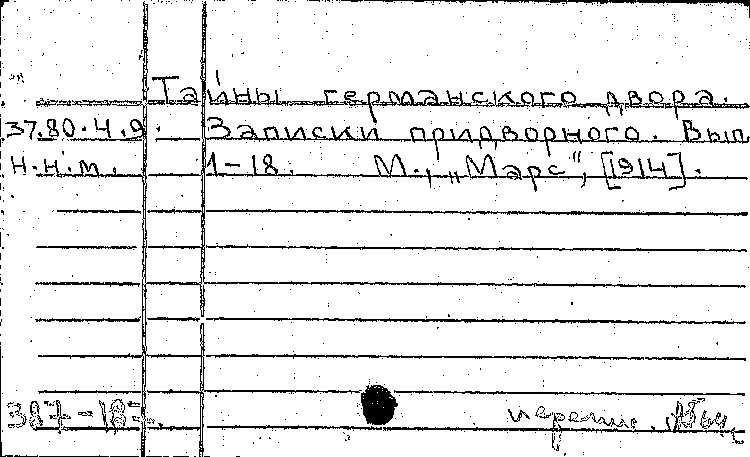 Тайны германского двора.
37.80.4.9. Записки придворного. Вып.
н.н.м. 1-18. М., „Марс", [1914].
387-187.